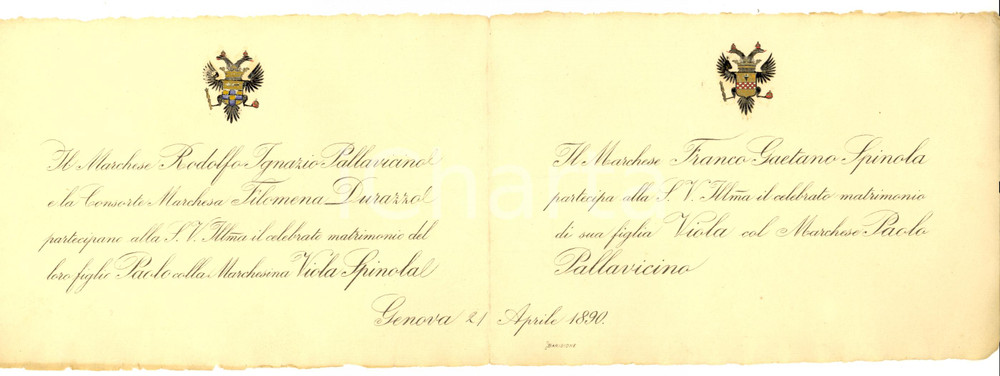 Il Marchese Rodolfo Ignazio Pallavicino
e la Consorte Marchesa Filomena Durazzo
partecipano alla S. V. Illma il celebrato matrimonio del
loro figlio Paolo colla Marchesina Viola Spinola
Il Marchese Franco Gaetano Spinola
partecipa alla S. V. Illma il celebrato matrimonio
di sua figlia Viola col Marchese Paolo
Pallavicino
Genova 21 Aprile 1890.